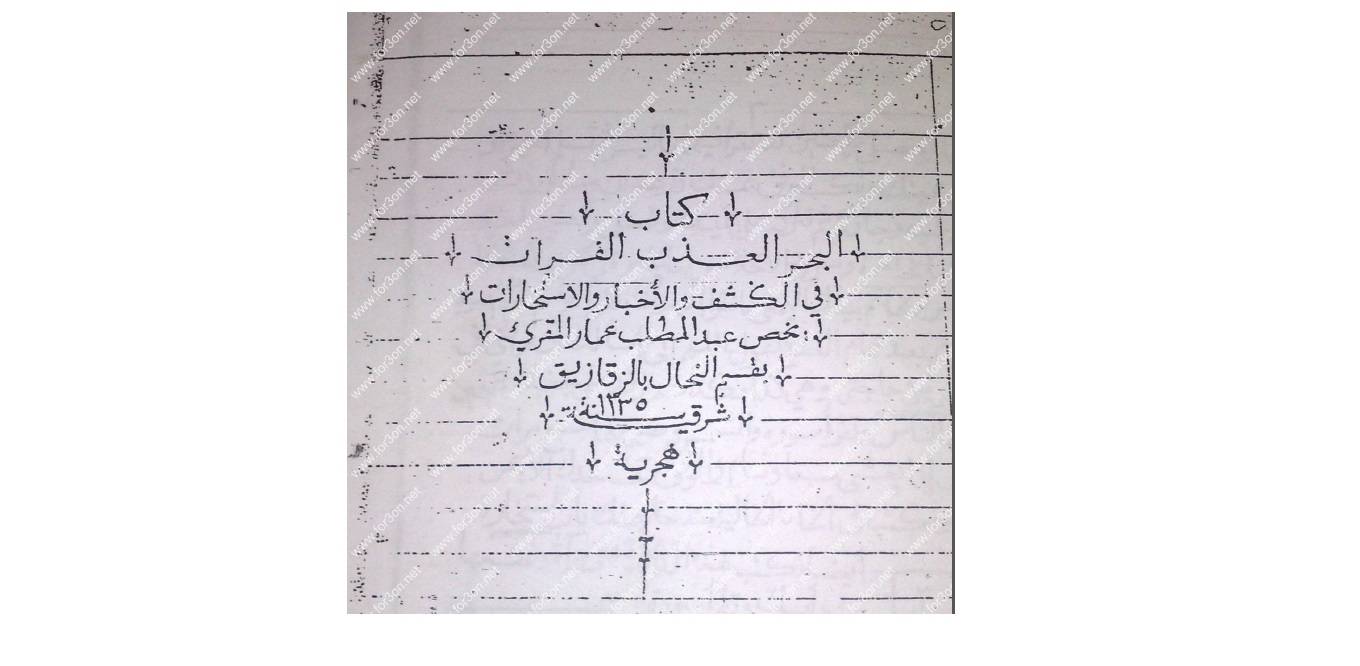 كتاب
البحر العذب الفرات
في الكشف والأخبار والاستخارات
يخص عبد المطلب عمار المقرئ
بقسم النحال بالزقازيق
شرقية سنة ١٣٣٥
هجرية
www.for3on.net